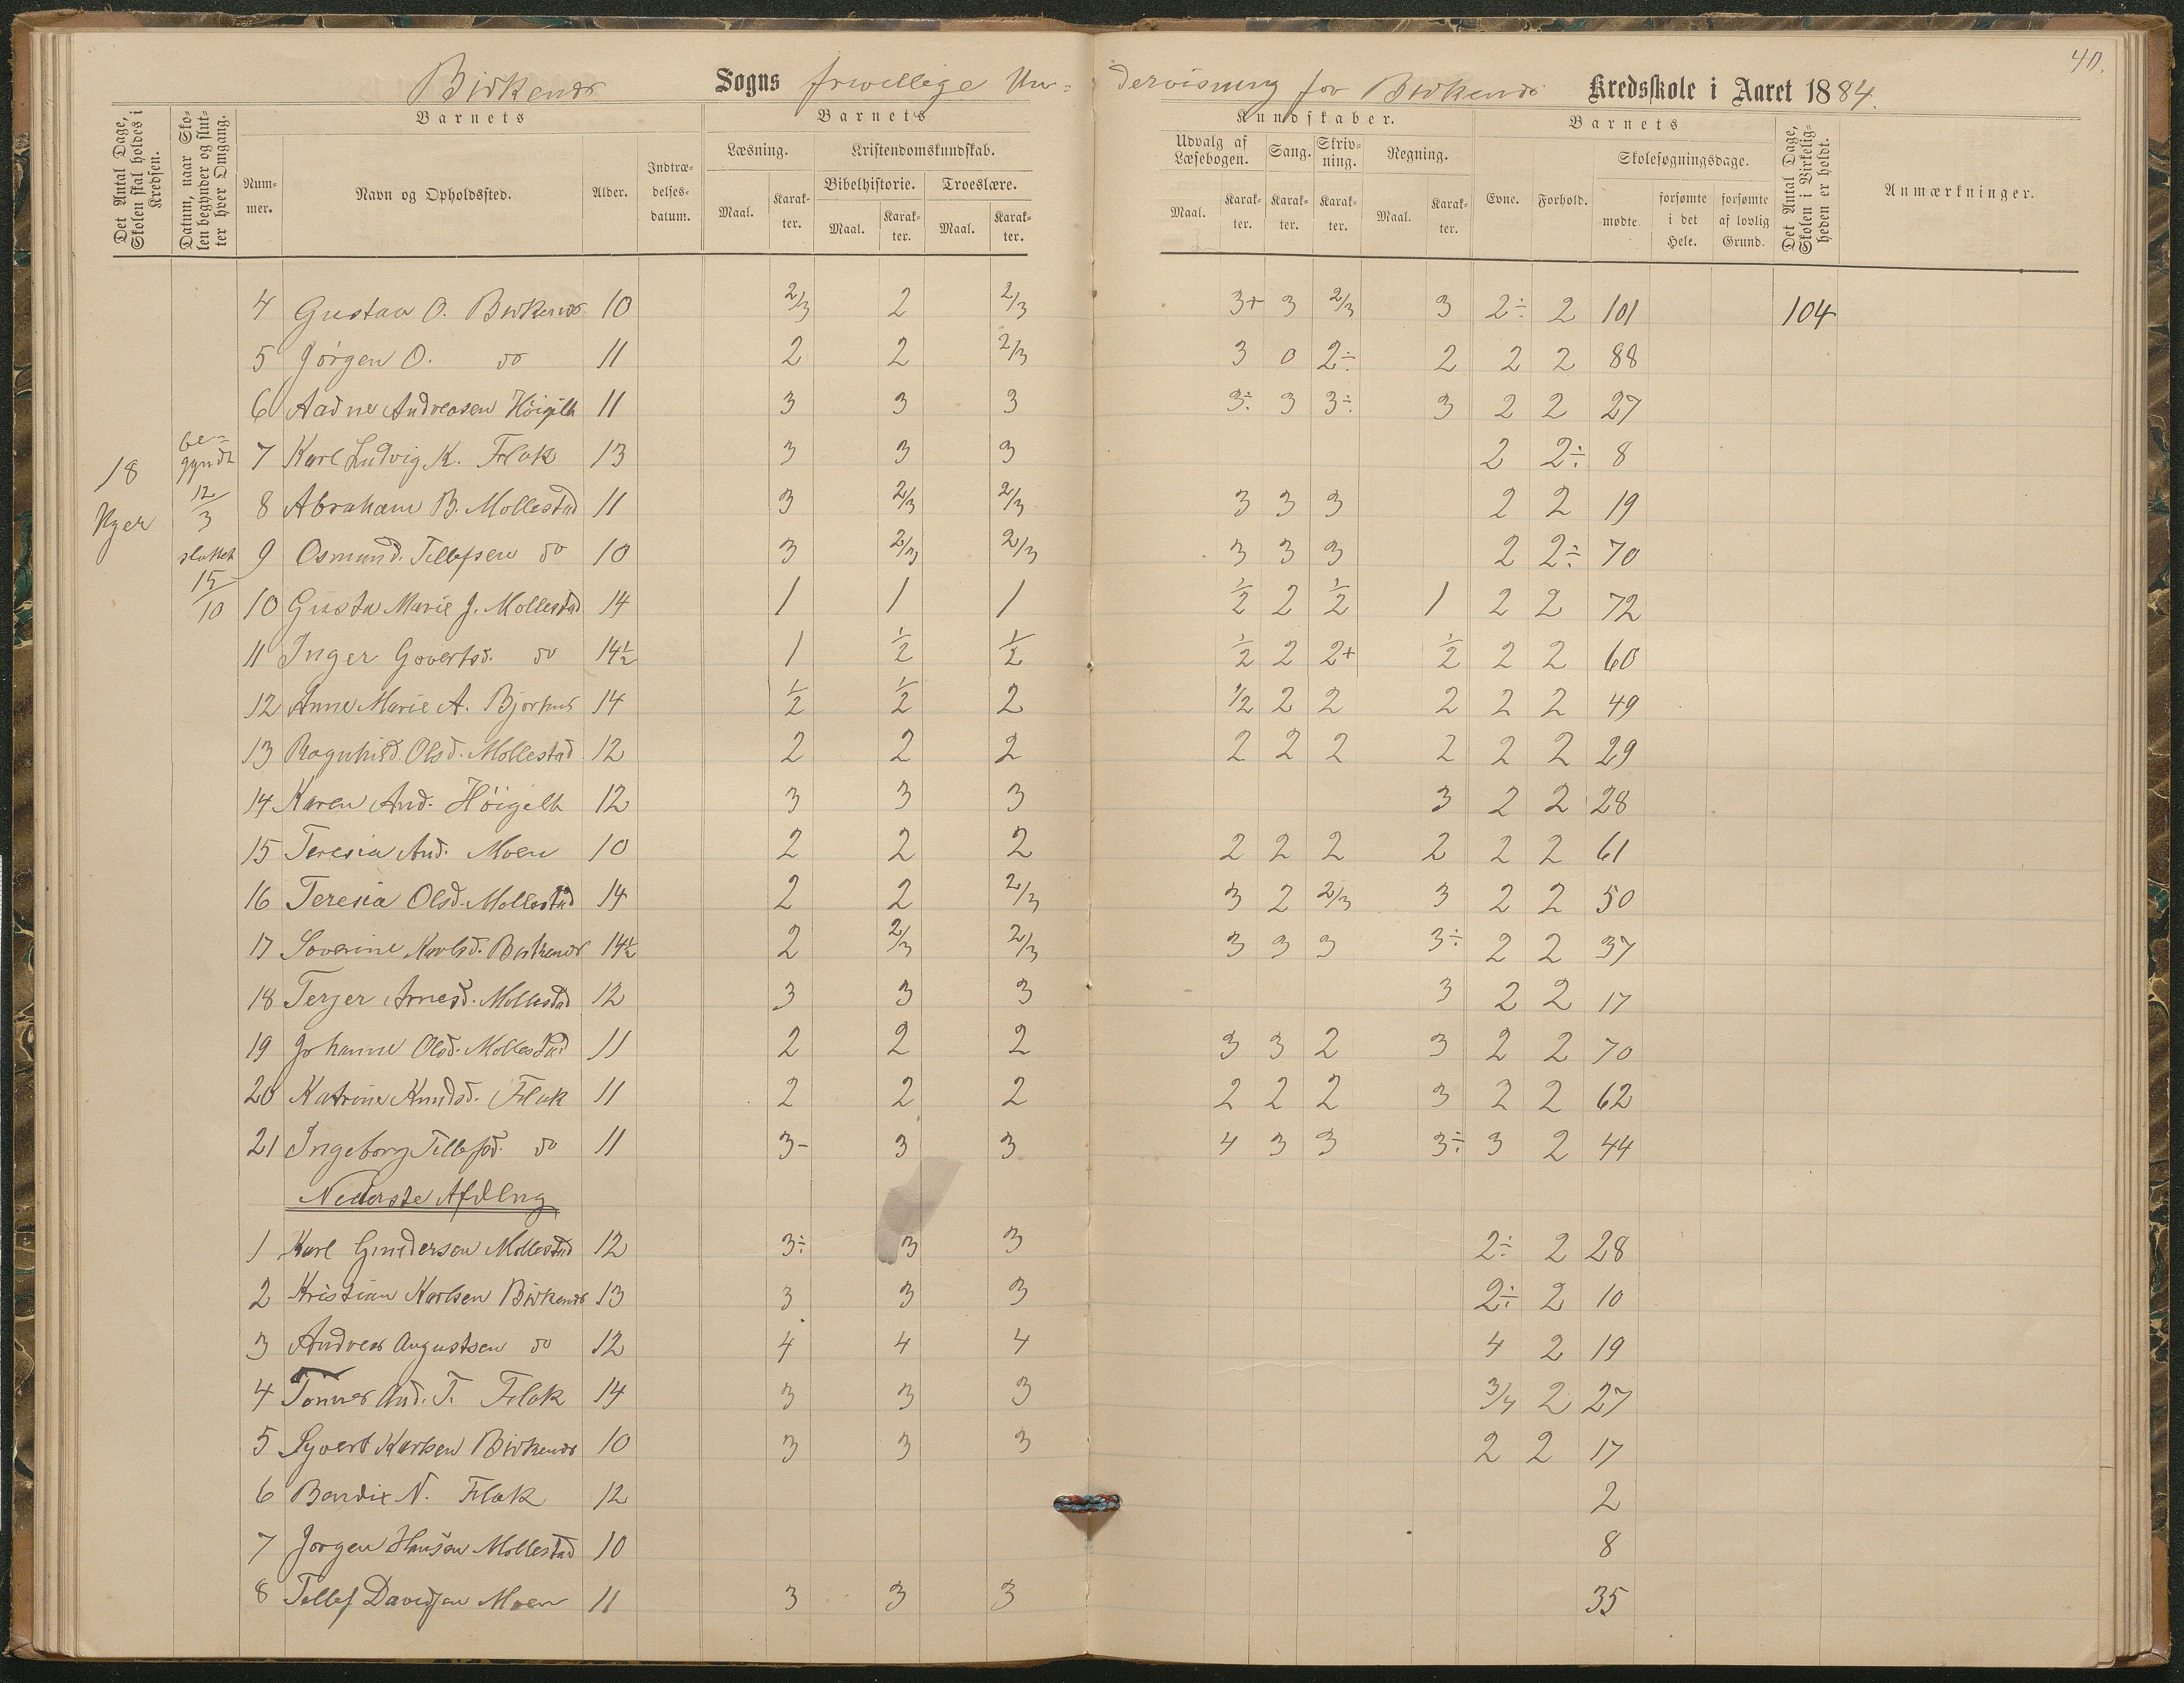 40.
Birkenæs Sogns frivellige Un= dervisning for Birkenæs Kredsskole i Aaret 1884.
Det Antal Dage, Skolen skal holdes i Kredsen.
Datum, naar Skolen begynder og slutter hver Omgang.
Barnets
Nummer.
Navn og Opholdssted.
Alder.
Indtrædelsesdatum.
Barnets
Læsning.
Maal. Karakter.
Kristendomskundskab.
Bibelhistorie.
Maal. Karakter.
Troeslære.
Maal. Karakter.
Kundskaber.
Udvalg af Læsebogen.
Maal. Karakter.
Sang.
Karakter.
Skrivning.
Karakter.
Regning.
Maal. Karakter.
Barnets
Evne. Forhold.
Skolesøgningsdage.
mødte. forsømte i det Hele. forsømte af lovlig Grund.
Det Antal Dage, Skolen i Virkeligheden er holdt.
Anmærkninger.
18 Uger
be= gyndt 12/3 sluttet 15/10
4 Gustav O. Birkenæs 10 2/3 2 2/3 3+ 3 2/3 3 2÷ 2 101 104
5 Jörgen O. do 11 2 2 2/3 3 0 2÷ 2 2 2 88
6 Aadne Andreasen Höigilt 11 3 3 3 3÷ 3 3÷ 3 2 2 27
7 Karl Ludvig K. Flak 13 3 3 3 2 2÷ 8
8 Abraham B. Mollestad 11 3 2/3 2/3 3 3 3 2 2 19
9 Osmund Tellefsen do 10 3 2/3 2/3 3 3 3 2 2÷ 70
10 Gusta Marie J. Mollestad 14 1 1 1 1/2 2 1/2 1 2 2 72
11 Inger Govertsd. do 14½ 1 1/2 1/2 1/2 2 2+ 1/2 2 2 60
12 Anne Marie A. Bjorhus 14 1/2 1/2 2 1/2 2 2 2 2 2 49
13 Ragnhild Olsd. Mollestad 12 2 2 2 2 2 2 2 2 2 29
14 Karen And. Höigelt 12 3 3 3 3 2 2 28
15 Teresia And. Moen 10 2 2 2 2 2 2 2 2 2 61
16 Teresia Olsd. Mollestad 14 2 2 2/3 3 2 2/3 3 2 2 50
17 Severine Karlsd. Birkenæs 14½ 2 2/3 2/3 3 3 3 3÷ 2 2 37
18 Terjer Arnesd. Mollestad 12 3 3 3 3 2 2 17
19 Johanne Olsd. Mollestad 11 2 2 2 3 3 2 3 2 2 70
20 Katrine Knudsd. Flak 11 2 2 2 2 2 2 3 2 2 62
21 Ingeborg Tellefsd. do 11 3- 3 3 4 3 3 3÷ 3 2 44
Nederste Afdlng
1 Karl Gundersen Mollestad 12 3÷ 3 3 2÷ 2 28
2 Kristian Karlsen Birkenæs 13 3 3 3 2÷ 2 10
3 Andreas Augustsen do 12 4 4 4 4 2 19
4 Tönnes And. T. Flak 14 3 3 3 3/4 2 27
5 Syvert Karlsen Birkenæs 10 3 3 3 2 2 17
6 Bendix N. Flak 12 2
7 Jorgen Hansen Mollestad 10 8
8 Tellef Davidsen Moen 11 3 3 3 35